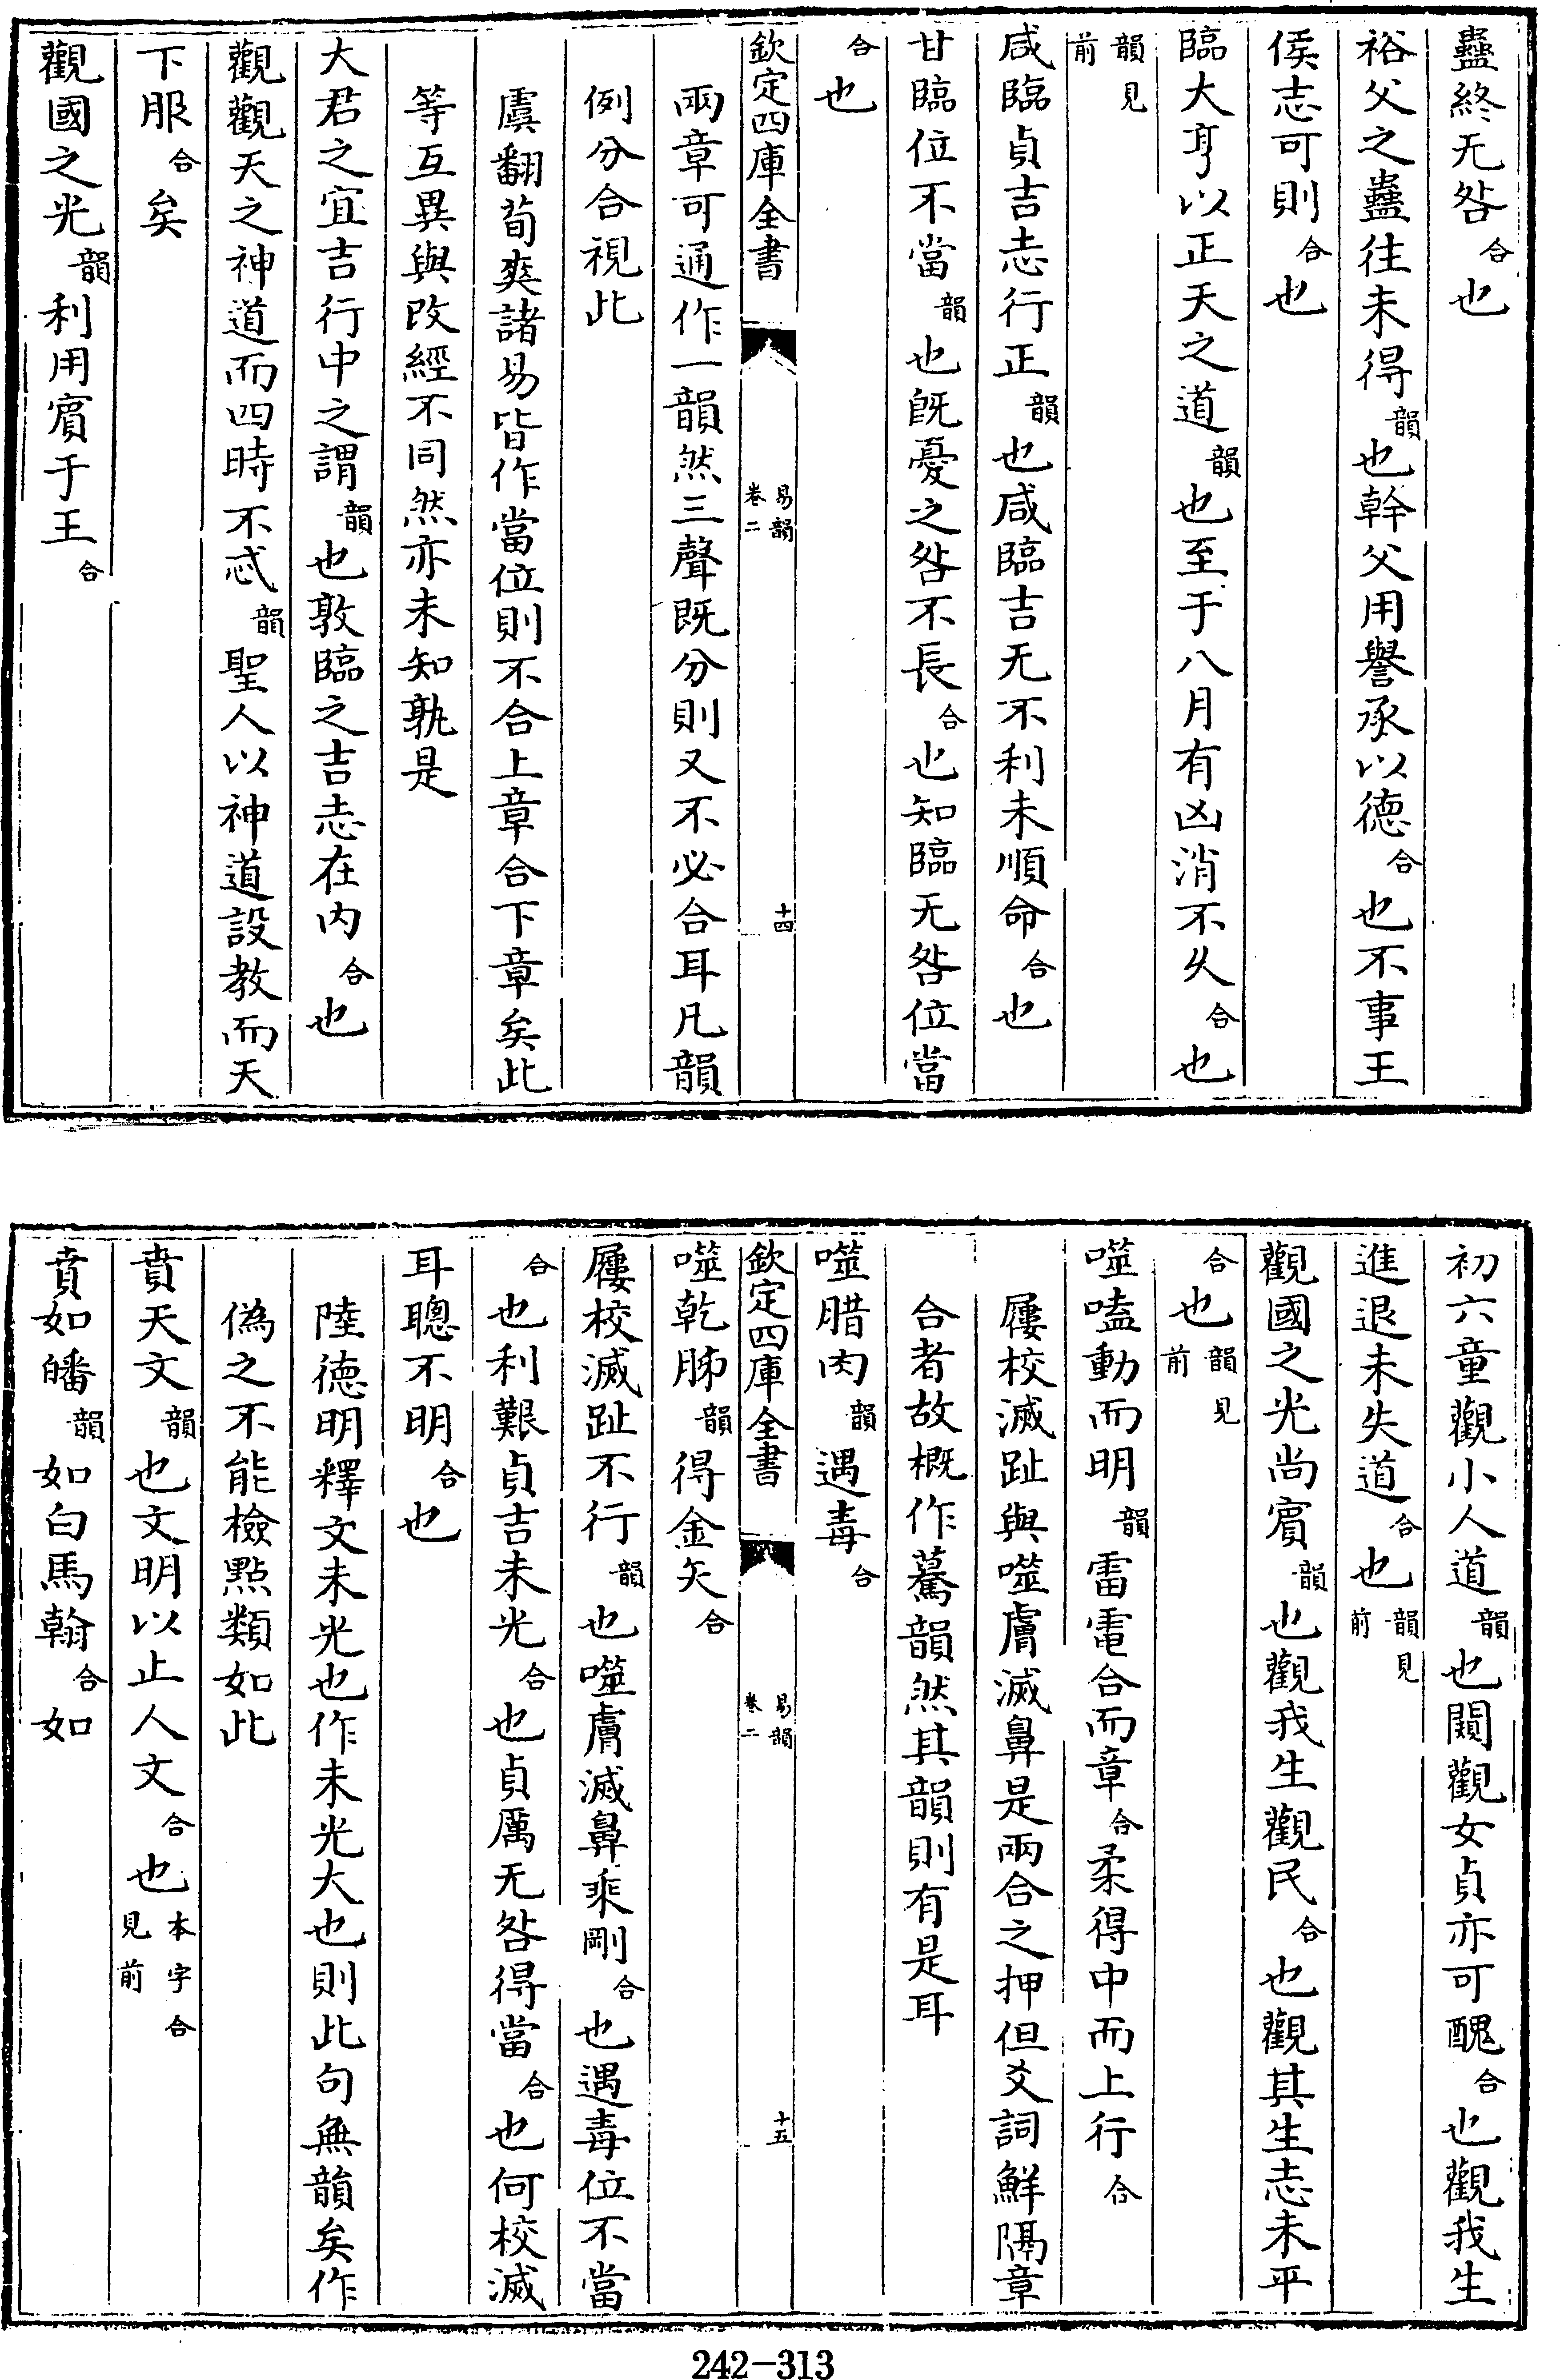 蠱終无咎合也
裕父之蠱往未得韻也幹父用譽承以德合也不事王
侯志可則合也
臨大亨以正天之道韻也至于八月有凶消不久合也
韻見前
咸臨貞吉志行正韻也咸臨吉无不利未順命合也
甘臨位不當韻也既憂之咎不長合也知臨无咎位當
合也
欽定四庫全書 易韻卷二 十四
兩章可通作一韻然三聲既分則又不必合耳凡韻
例分合視此
虞翻荀爽諸易皆作當位則不合上章合下章矣此
等互異與改經不同然亦未知孰是
大君之宜吉行中之謂韻也敦臨之吉志在内合也
觀觀天之神道而四時不忒韻聖人以神道設教而天
下服合矣
觀國之光韻利用賓于王合
初六童觀小人道韻也闚觀女貞亦可醜合也觀我生
進退未失道合也韻見前
觀國之光尚賓韻也觀我生觀民合也觀其生志未平
合也韻見前
噬嗑動而明韻雷電合而章合柔得中而上行合
屨校滅趾與噬膚滅鼻是兩合之押但爻詞鮮隔章
合者故概作驀韻然其韻則有是耳
噬腊肉韻遇毒合
欽定四庫全書 易韻卷二 十五
噬乾胏韻得金矢合
屨校滅趾不行韻也噬膚滅鼻乘剛合也遇毒位不當
合也利艱貞吉未光合也貞厲无咎得當合也何校滅
耳聰不明合也
陸德明釋文未光也作未光大也則此句無韻矣作
偽之不能檢點類如此
賁天文韻也文明以止人文合也本字合見前
賁如皤韻如白馬翰合如
242-313